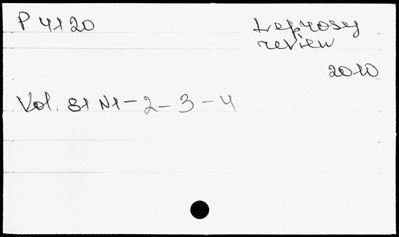 P 4120
Leprosy
review
2010
Vol. 81 N1 - 2 - 3 - 4